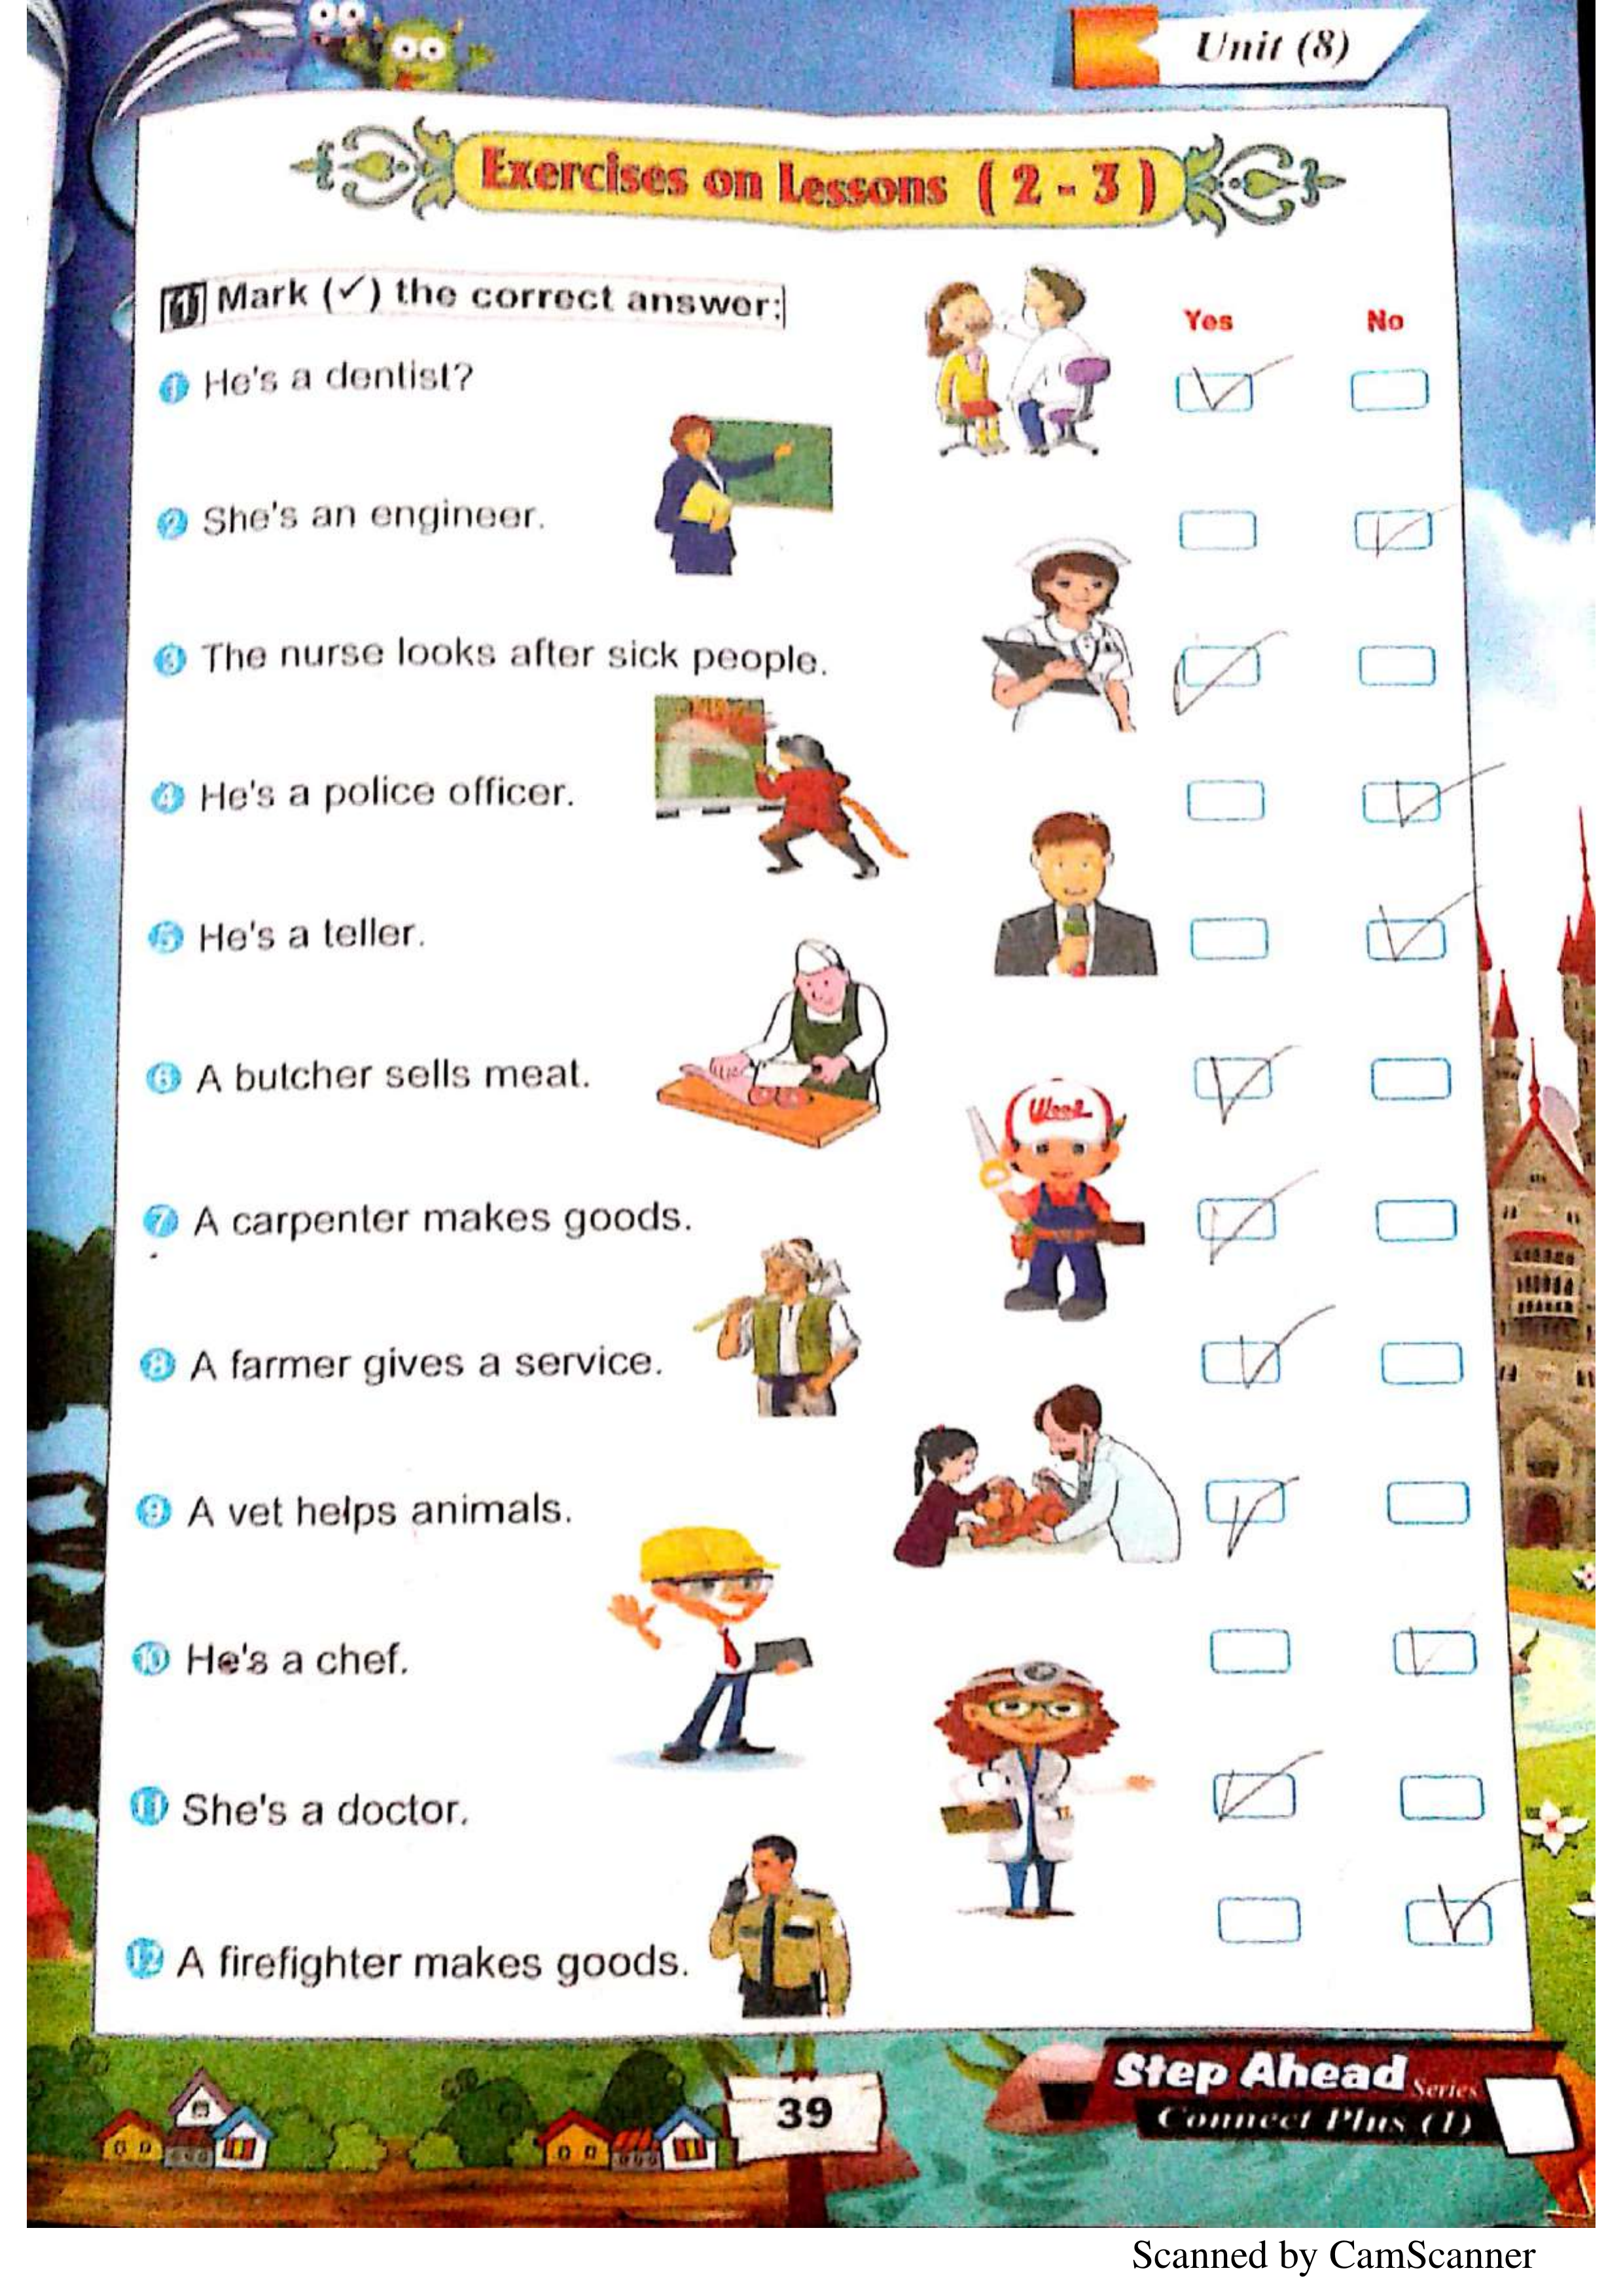 Unit (8)
Exercises on Lessons ( 2 - 3 )
1 Mark (✓) the correct answer:
Yes No
1 He's a dentist?
2 She's an engineer.
3 The nurse looks after sick people.
4 He's a police officer.
5 He's a teller.
6 A butcher sells meat.
Wood
7 A carpenter makes goods.
8 A farmer gives a service.
9 A vet helps animals.
10 He's a chef.
11 She's a doctor.
12 A firefighter makes goods.
39
Step Ahead Series
Connect Plus (1)
Scanned by CamScanner